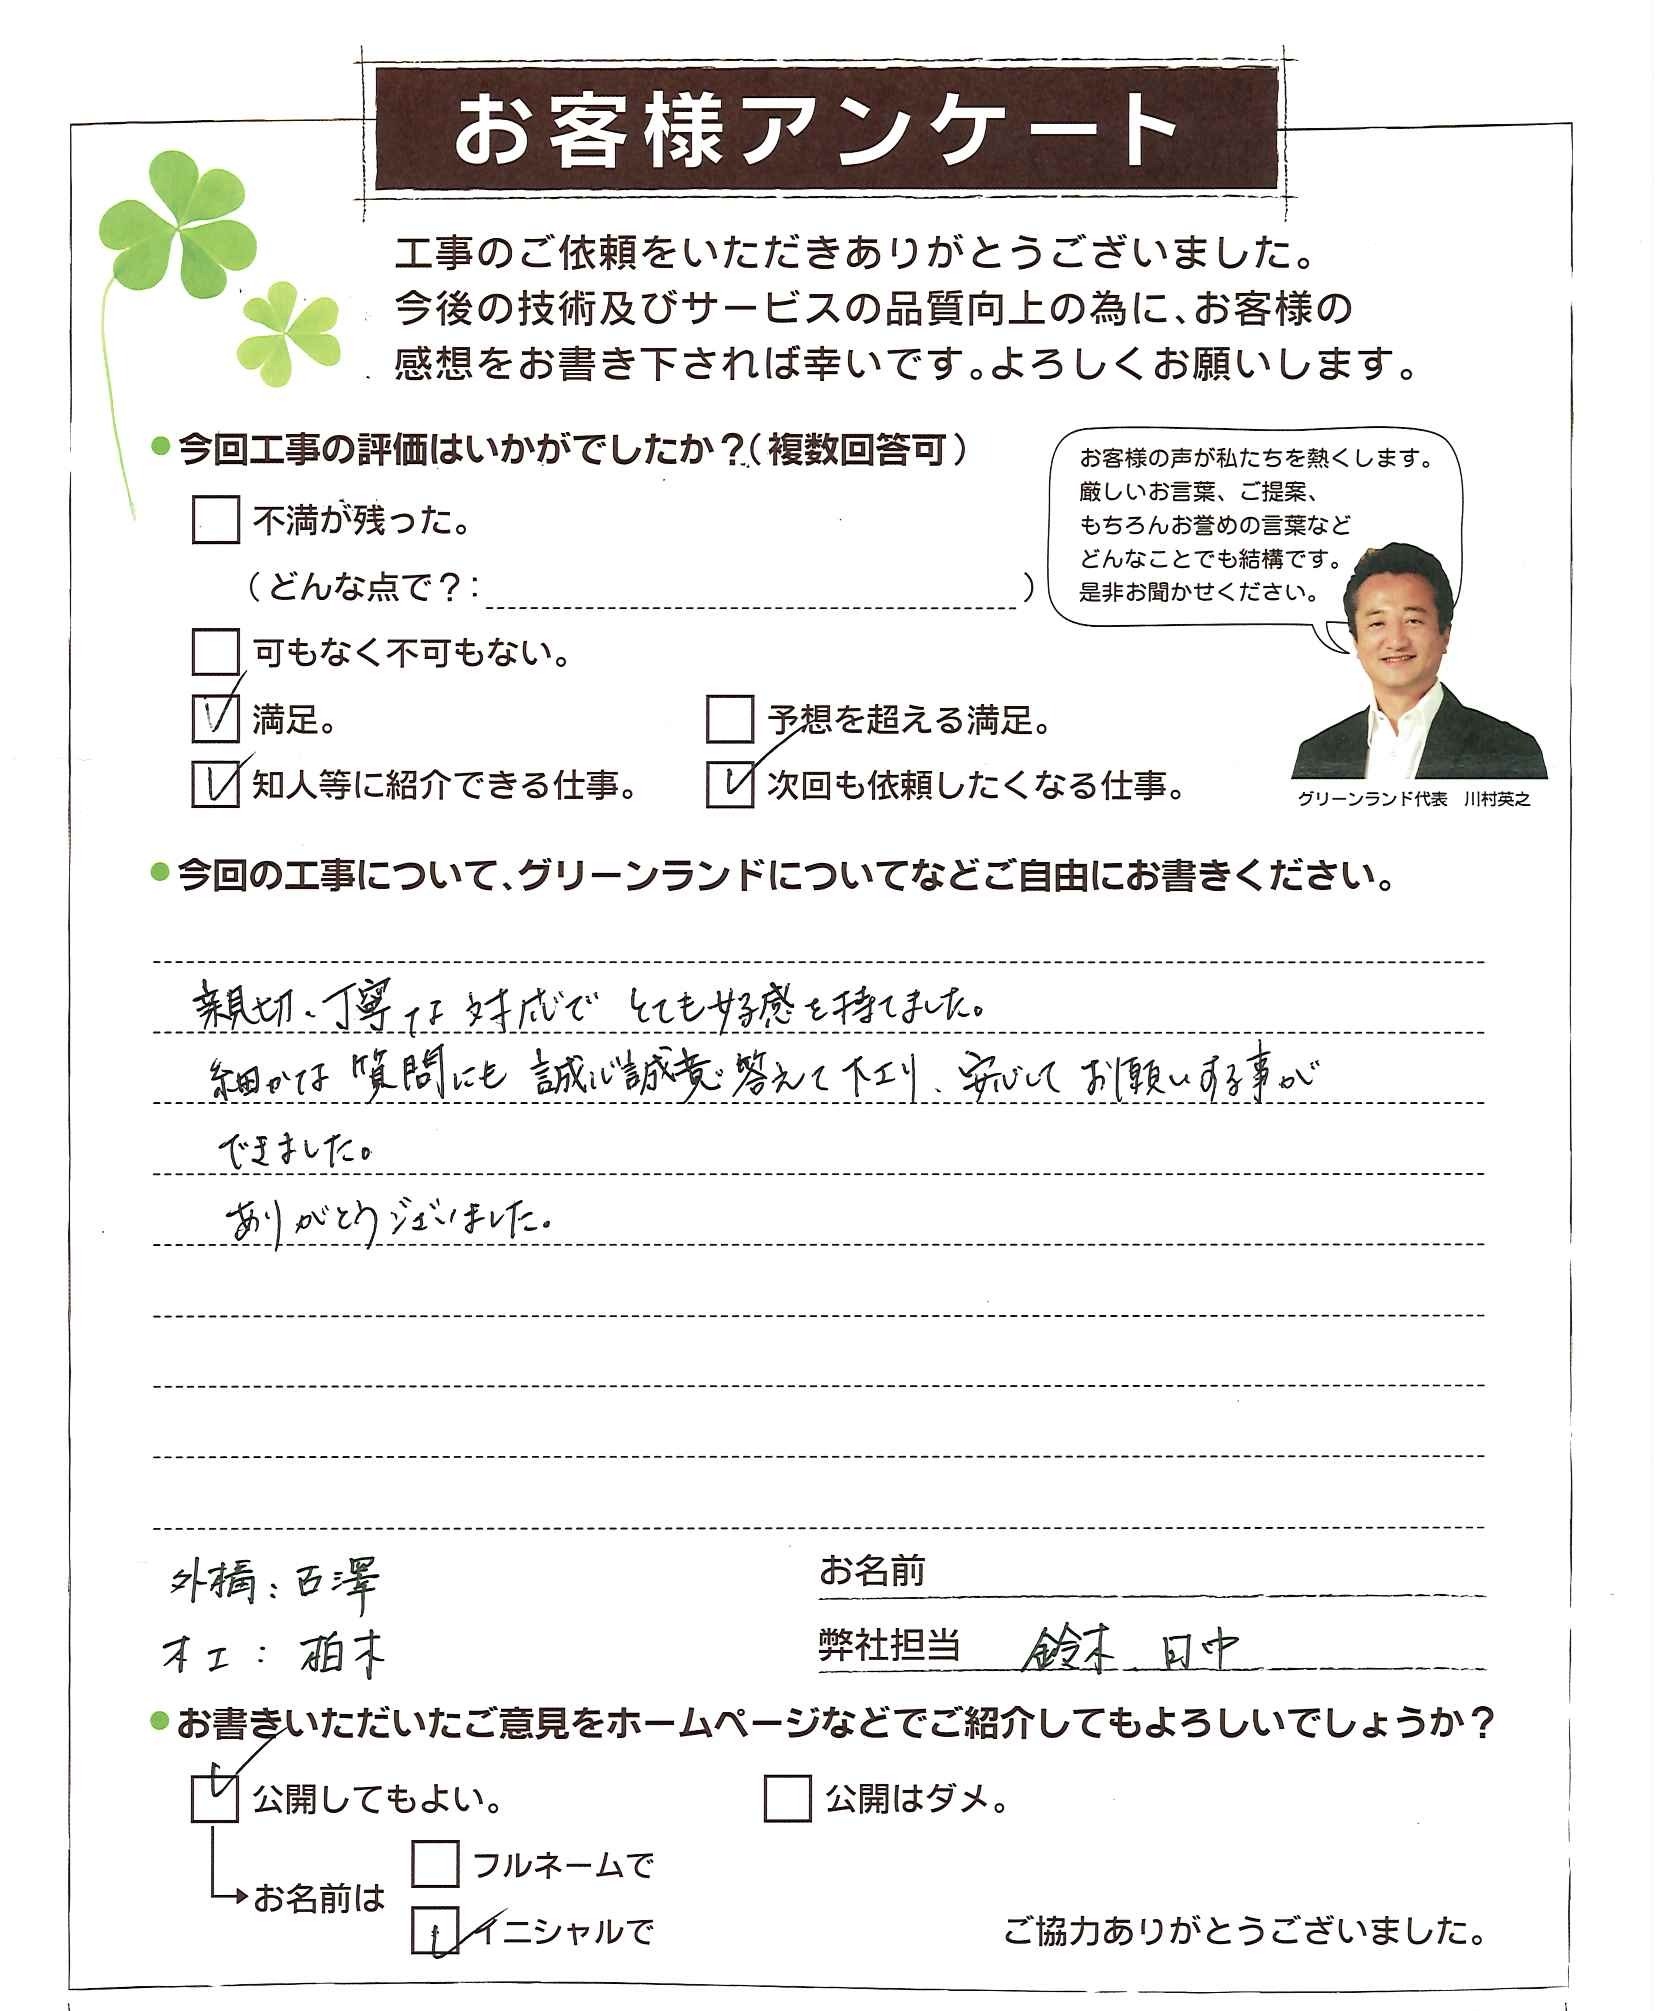 お客様アンケート
工事のご依頼をいただきありがとうございました。
今後の技術及びサービスの品質向上の為に、お客様の
感想をお書き下されば幸いです。よろしくお願いします。
●今回工事の評価はいかがでしたか？（複数回答可）
不満が残った。
（どんな点で？：）
可もなく不可もない。
満足。
予想を超える満足。
知人等に紹介できる仕事。
次回も依頼したくなる仕事。
お客様の声が私たちを熱くします。
厳しいお言葉、ご提案、
もちろんお誉めの言葉など
どんなことでも結構です。
是非お聞かせください。
グリーンランド代表　川村英之
●今回の工事について、グリーンランドについてなどご自由にお書きください。
親切、丁寧な対応でとても好感を持てました。
細かな質問にも誠心誠意答えて下エり、安心してお願いする事が
できました。
ありがとうございました。
外構：百澤
木工：柏木
お名前
弊社担当　鈴木 田中
●お書きいただいたご意見をホームページなどでご紹介してもよろしいでしょうか？
公開してもよい。
公開はダメ。
お名前は
フルネームで
イニシャルで
ご協力ありがとうございました。